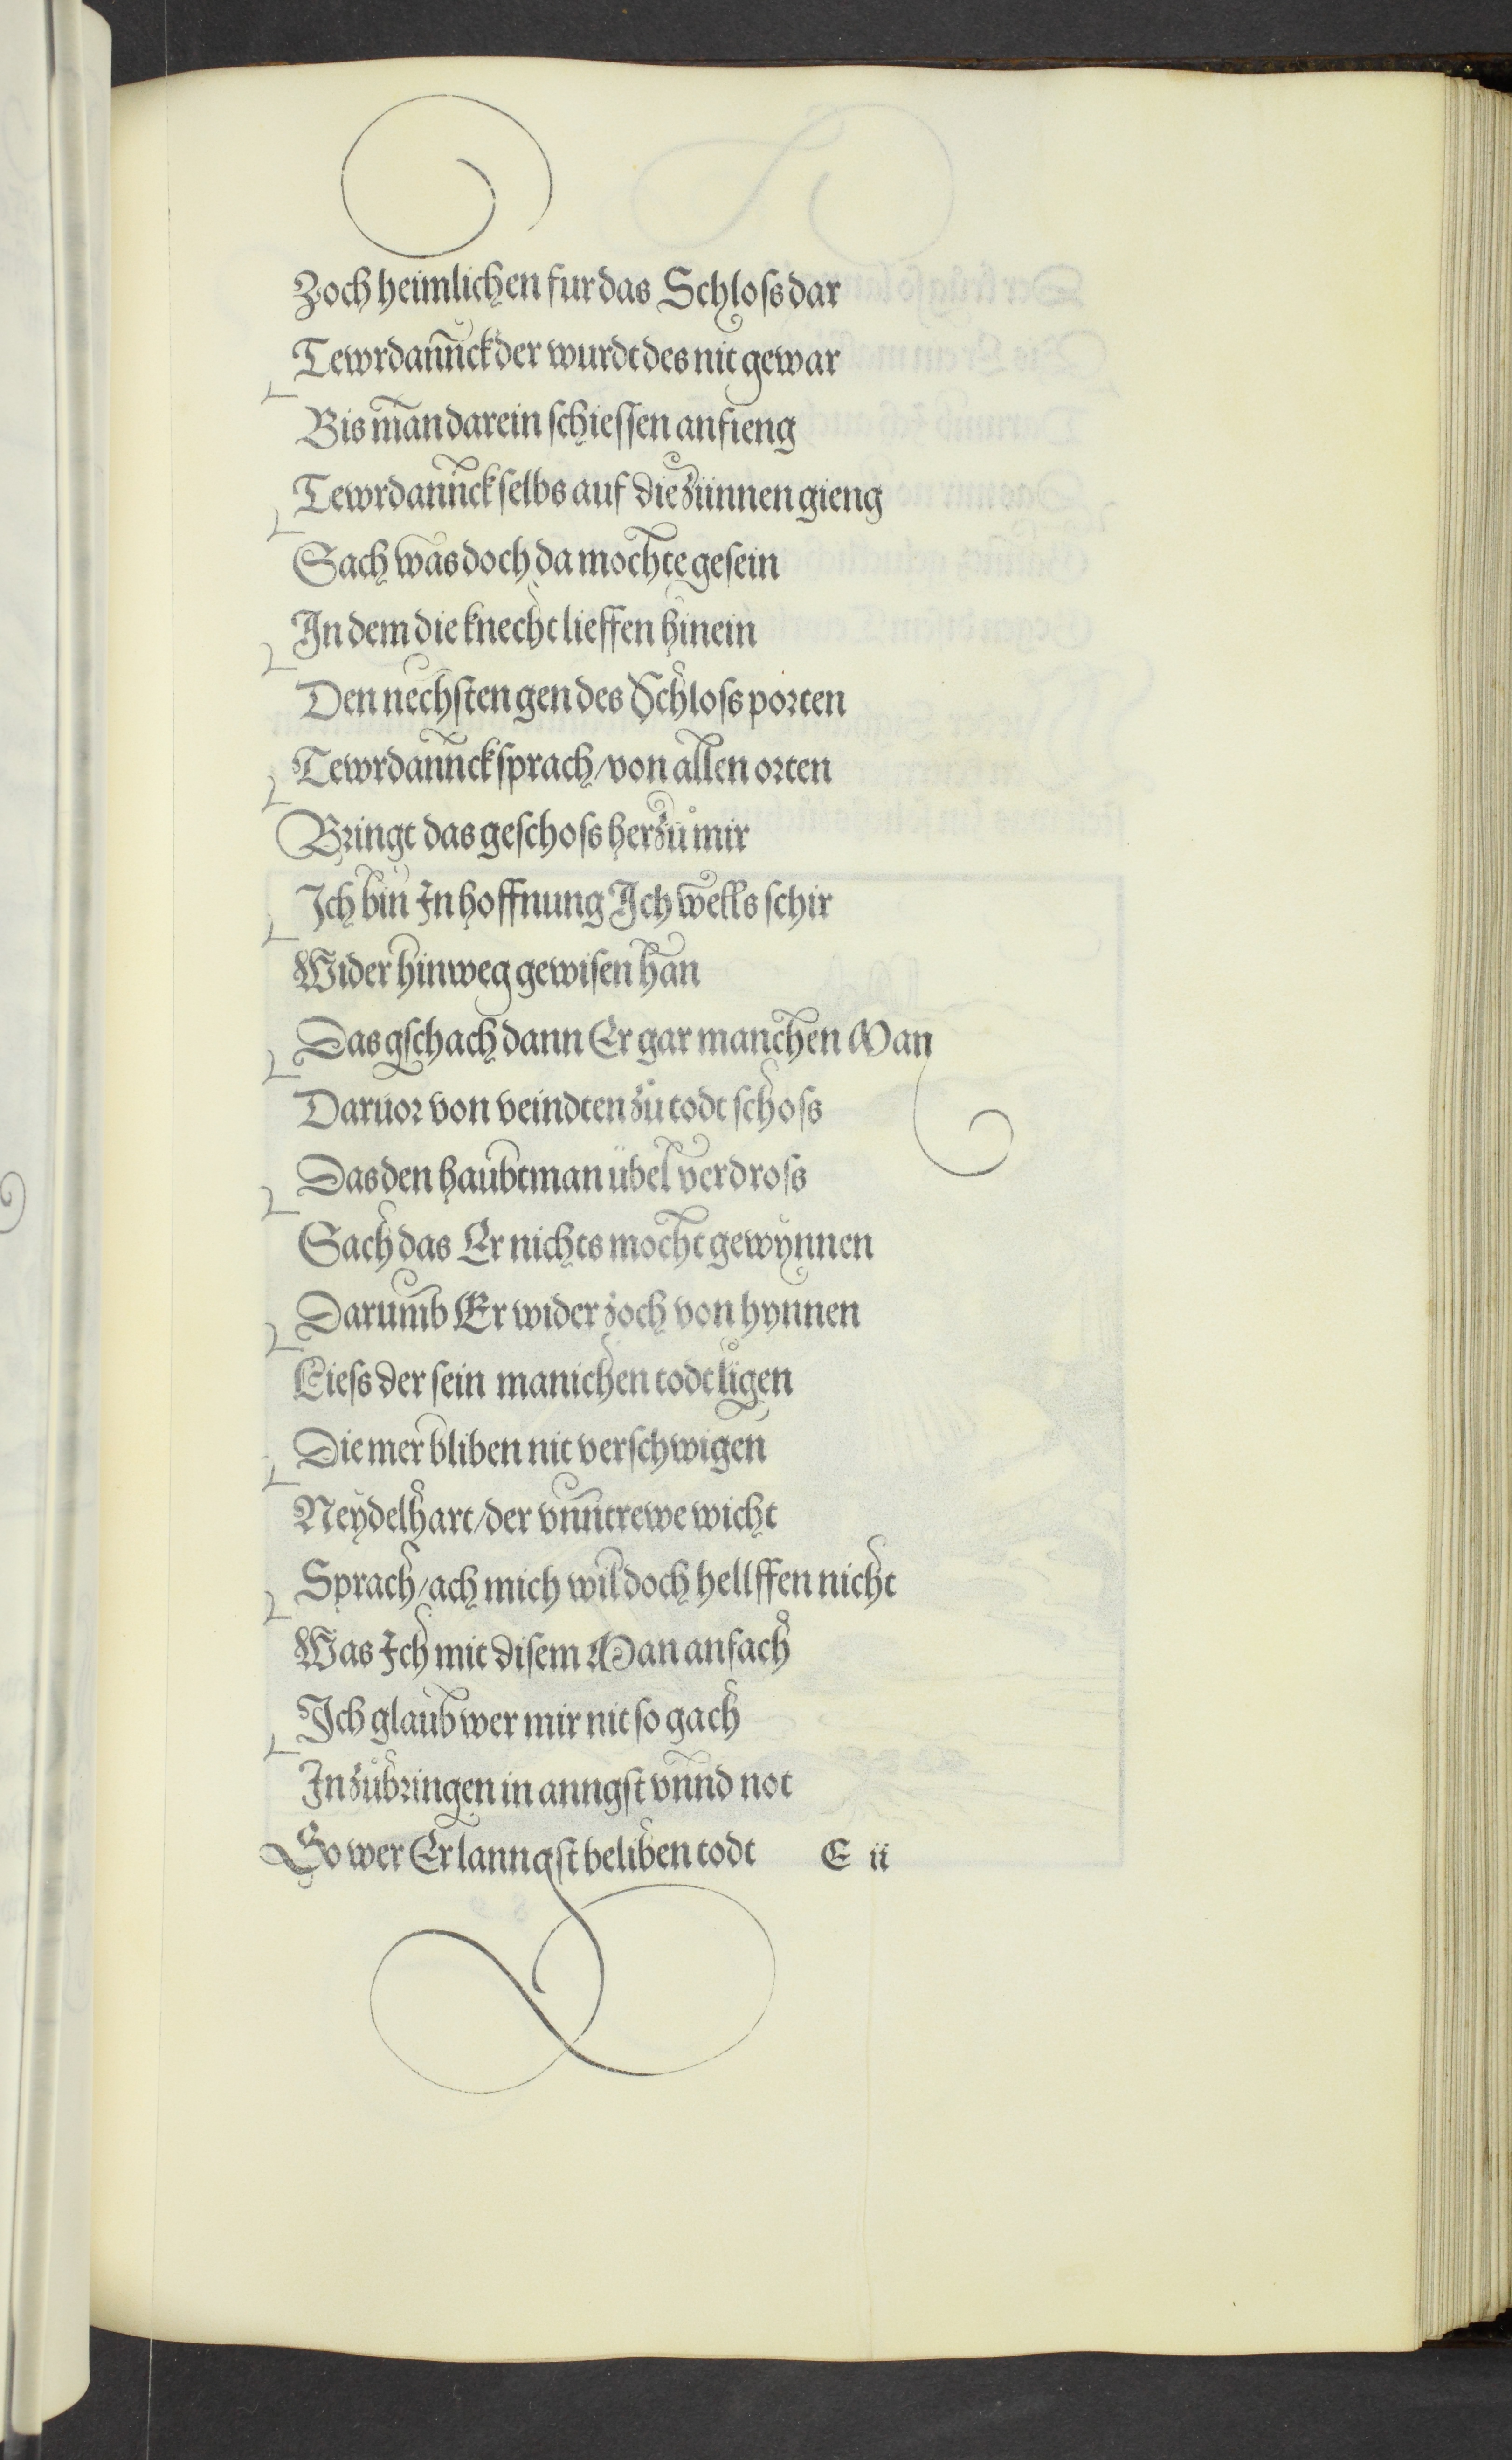 Zoch heimlichen fur das Schloſs dar
Tewrdannck der wurdt des nit gewar
Bis man darein ſchieſſen anfieng
Tewrdannck ſelbs auf die zünnen gieng
Sach was doch da mochte geſein
In dem die knecht lieffen hinein
Den nechſten gen des Schloſs porten
Tewrdannck ſprach / von allen orten
Bringt das geſchoſs her zů mir
Ich bin In hoffnung Ich wells ſchir
Wider hinweg gewiſen han
Das gſchach dann Er gar manchen Man
Daruor von veindten zů todt ſchoſs
Das den haubtman übel verdroſs
Sach das Er nichts mocht gewynnen
Darumb Er wider zoch von hynnen
Lieſs der ſein manichen todt ligen
Die mer bliben nit verſchwigen
Neydelhart / der vnntrewe wicht
Sprach / ach mich wil doch hellffen nicht
Was Ich mit diſem Man anfach
Ich glaub wer mir nit ſo gach
In zůbringen in anngſt vnnd not
So wer Er lanngſt beliben todt E ii